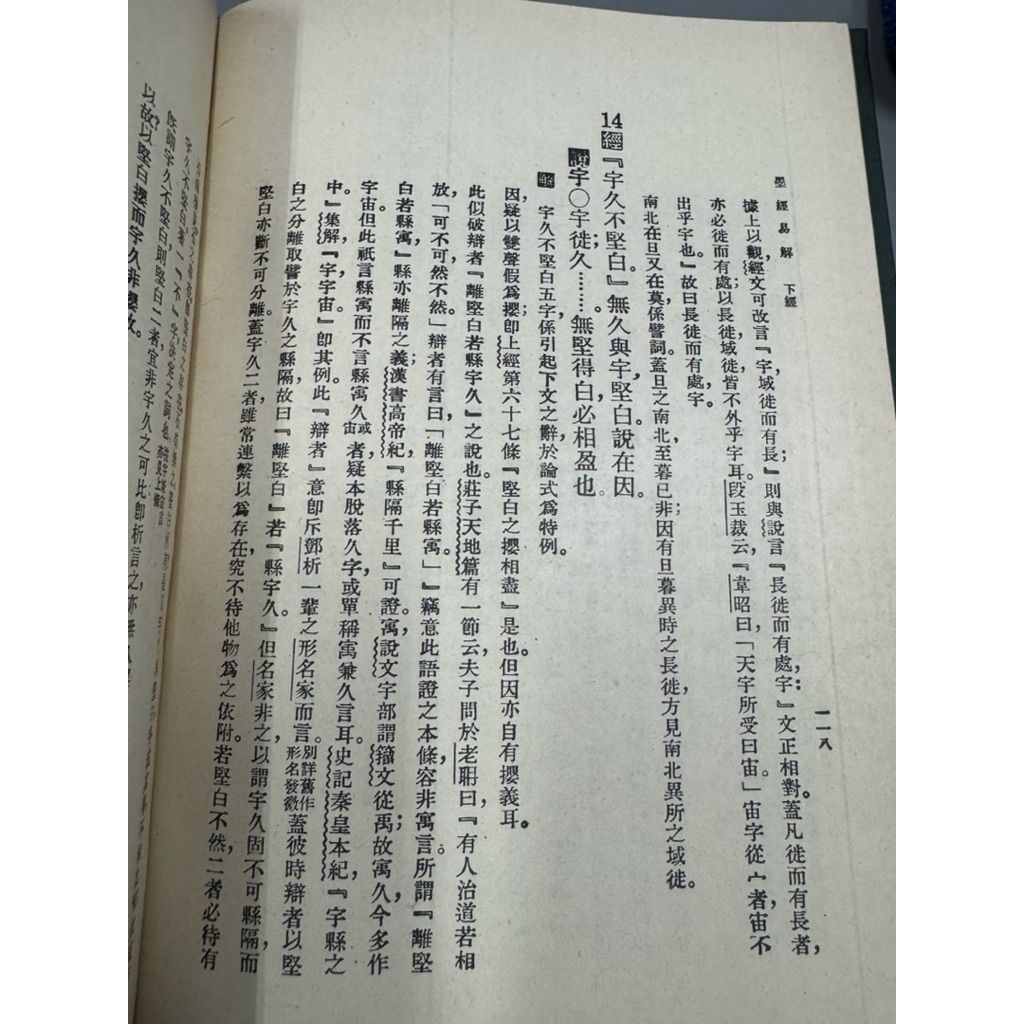 墨經易解 下經
一一八
據上以觀經文可改言『宇域徙而有長；』則與說言『長徙而有處宇』文正相對。蓋凡徙而有長者，
亦必徙而有處以長徙域徙皆不外乎宇耳。段玉裁云，『韋昭曰，「天宇所受曰宙。」宙字從宀者宙不
出乎宇也』故曰長徙而有處宇。
南北在旦又在莫係譬詞蓋旦之南北至暮已非；因有旦暮異時之長徙方見南北異所之域徙。
14經『宇久不堅白。』無久與宇堅白說在因。
說宇○宇徙久；………無堅得白，必相盈也
解 宇久不堅白五字係引起下文之辭於論式爲特例。
因疑以雙聲假爲攖卽上經第六十七條『堅白之攖相盡』是也。但因亦自有攖義耳。
此似破辯者『離堅白若縣宇久』之說也。莊子天地篇有一節云夫子問於老聃曰『有人治道若相
放，「可不可然不然。」辯者有言曰，「離堅白若縣寓。」』竊意此語證之本條，容非寓言。所謂『離堅
白若縣寓』縣亦離隔之義漢書高帝紀『縣隔千里』可證。寓，說文宇部謂籀文從禹；故寓久今多作
宇宙但此祇言縣寓而不言縣寓久或宙者疑本脫落久字或單稱寓兼久言耳。史記秦皇本紀，『宇縣之
中。』集解『宇宙』卽其例。此『辯者』意卽斥鄧析一輩之形名家而言。別詳舊作形名發微蓋彼時辯者以堅
白之分離取譬於宇久之縣隔故曰『離堅白』若『縣宇久』但名家非之，以謂宇久固不可縣隔而
堅白亦斷不可分離。蓋宇久二者雖常連繫以爲存在，究不待他物爲之依附。若堅白不然，二者必待有
旣謂宇久不堅白則堅白二者宜非宇久之可比卽析言之，亦
以故以堅白攖而宇久非攖故。